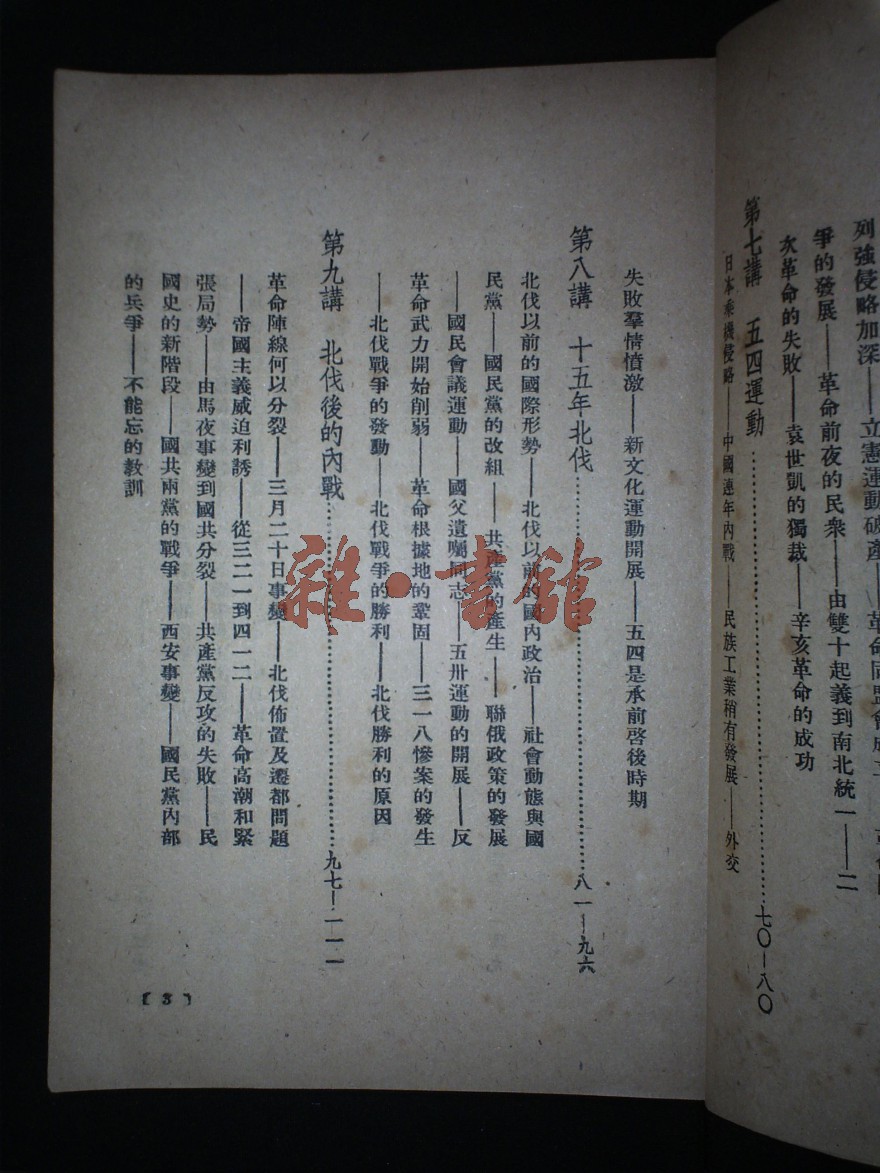 列強侵略加深——立憲運動破產——革命同盟會成立
爭的發展——革命前夜的民衆——由雙十起義到南北統一——二
次革命的失敗——袁世凱的獨裁——辛亥革命的成功
第七講 五四運動……七〇—八〇
日本乘機侵略——中國連年內戰——民族工業稍有發展——外交
失敗羣情憤激——新文化運動開展——五四是承前啓後時期
第八講 十五年北伐……八一—九六
北伐以前的國際形勢——北伐以前的國內政治——社會動態與國
民黨——國民黨的改組——共產黨的產生——聯俄政策的發展
——國民會議運動——國父遺囑同志——五卅運動的開展——反
革命武力開始削弱——革命根據地的鞏固——三一八慘案的發生
——北伐戰爭的發動——北伐戰爭的勝利——北伐勝利的原因
第九講 北伐後的內戰……九七—一一一
革命陣線何以分裂——三月二十日事變——北伐佈置及遷都問題
——帝國主義威迫利誘——從三二一到四一二——革命高潮和緊
張局勢——由馬夜事變到國共分裂——共產黨反攻的失敗——民
國史的新階段——國共兩黨的戰爭——西安事變——國民黨內部
的兵爭——不能忘的教訓
〔3〕
雜·書館